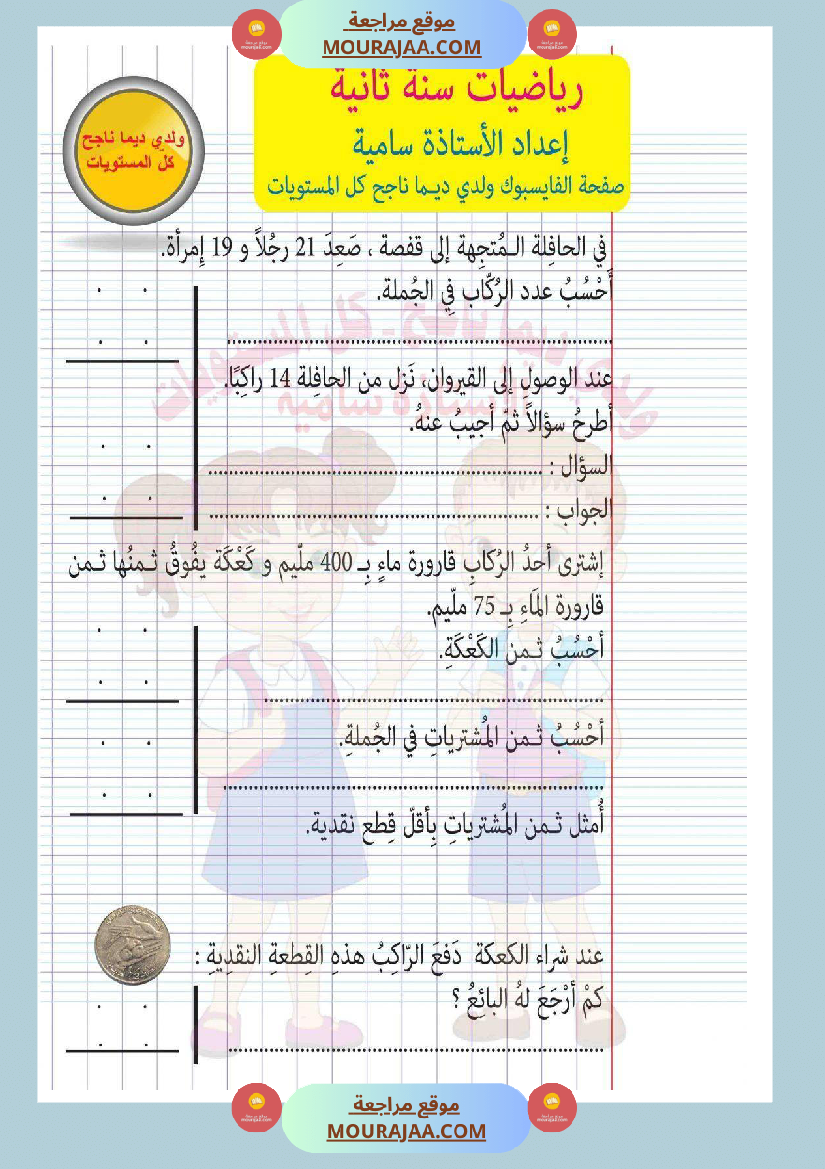 موقع مراجعة
MOURAJAA.COM
رياضيات سنة ثانية
إعداد الأستاذة سامية
صفحة الفايسبوك ولدي ديما ناجح كل المستويات
ولدي ديما ناجح
كلّ المستويات
في الحافِلة الـمُتجِهة إلى قفصة ، صَعِدَ 21 رجُلاً و 19 إِمرأة.
أَحْسُبُ عدد الرُكّاب فِي الجُملة.
عند الوصولِ إلى القيروان، نَزل من الحافِلة 14 راكِبًا.
أطرحُ سؤالاً ثمّ أجيبُ عنهُ.
السؤال : ........................................
الجواب : ........................................
إشترى أحدُ الرُكابِ قارورة ماءٍ بِـ 400 ملّيم و كَعْكَة يفُوقُ ثـمنُها ثـمن
قارورة المَاءِ بِـ 75 ملّيم.
أحْسُبُ ثـمن الكَعْكَةِ.
أحْسُبُ ثـمن المُشترياتِ في الجُملةِ.
أُمثل ثـمن المُشترياتِ بِأقلّ قِطع نقدية.
عند شراء الكعكة دَفعَ الرّاكِبُ هذهِ القِطعةِ النقدِيةِ :
كمْ أرْجَعَ لهُ البائِعُ ؟
موقع مراجعة
MOURAJAA.COM